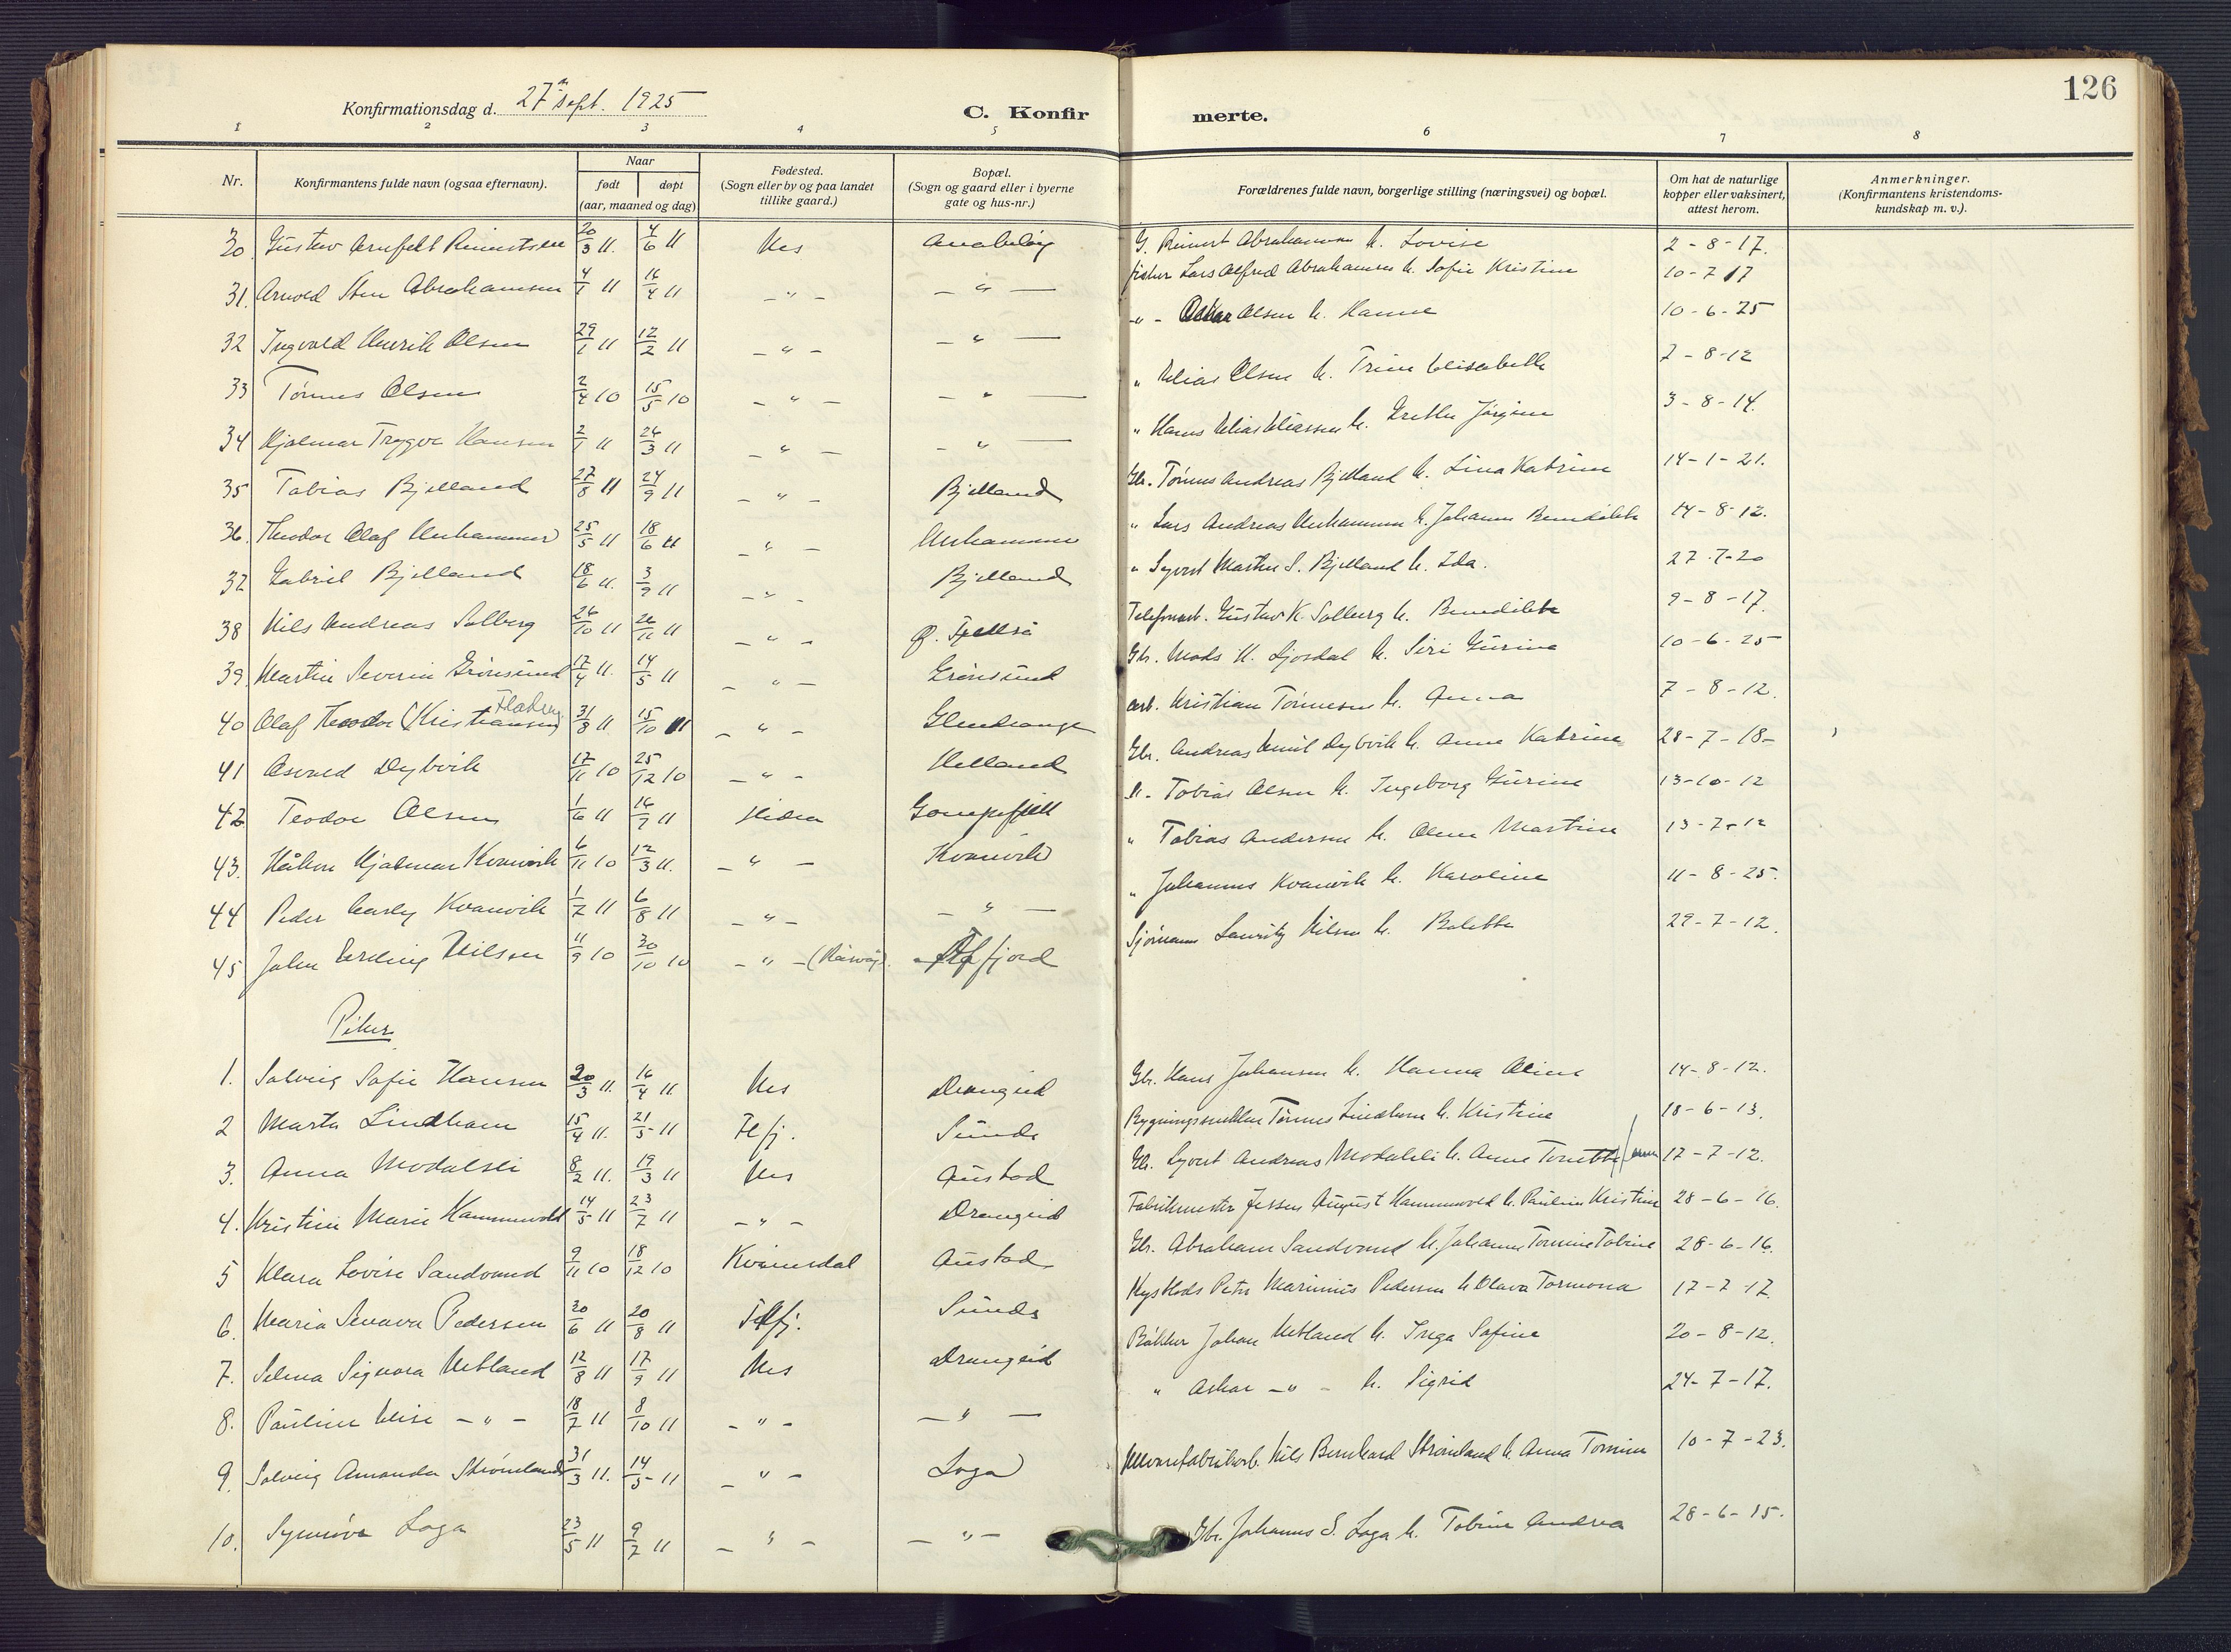 126
Konfirmationsdag d. 27 sept. 1925
C. Konfirmerte.
1 2 3 4 5 6 7 8
Nr.
Konfirmantens fulde navn (ogsaa efternavn).
Naar
født døpt
(aar, maaned og dag)
Fødested.
(Sogn eller by og paa landet
tillike gaard.)
Bopæl.
(Sogn og gaard eller i byerne
gate og hus-nr.)
Forældrenes fulde navn, borgerlige stilling (næringsvei) og bopæl.
Om hat de naturlige
kopper eller vaksinert,
attest herom.
Anmerkninger.
(Konfirmantens kristendoms-
kundskap m. v.).
30 Gustav Arnfelt 20/3 11. 4/6 11 Nes Anabeløy Abrahamsen h. Lovise 2-8-17.
31. Arnold Sten Abrahamsen 4/1 11 16/4 11 – " – – " – fisker Lars Alfred Abrahamsen h. Sofie Kristine 10-7 17
32 Ingvald Henrik Olsen 29/1 11 12/2 11 – " – – " – – " – Olsen h. Hanne 10-6-25
33 Tønnes Olsen 2/4 10 15/5 10 – " – – " – " Elias Olsen h. Trine Elisabeth 7-8-12
34 Hjalmar Trygve Hansen 2/1 11 26/3 11 – " – – " – " Hans Elias Eliassen h. Grethe Jørgine 3-8-14.
35 Tobias Bjelland 27/8 11 24/9 11 – " – Bjelland Gbr. Tønnes Andreas Bjelland h. Lina Katrine 14-1-21.
36. Theodor Olaf Urhammer 25/5 11 18/6 11 – " – Urhammer " Lars Andreas Urhammer h. Johanne Benedikte 14-8-12.
37 Gabriel Bjelland 18/6 11. 3/9 11 – " – Bjelland " Syvert Martin S. Bjelland h. Ida. 27-7-20
38 Nils Andreas Solberg 26/10 11 26/11 11 – " – Ø. Fjellså Gustav K. Solberg h. Benedikte 9-8-17.
39. Martin Severin Grønsund 17/4 11. 14/5 11 – " – Grønsund Gbr. Mads H. h. Siri Gurine 10-6-25
40 Olaf Theodor (Kristiansen) 31/8 11 15/10 11 – " – Glendrange arb. Kristian Tønnesen h. Anna 7-8-12.
41 Asvald Dybvik 17/11 10 25/12 10 – " – Helland Gbr. Andreas Emil Dybvik h. Anne Katrine 28-7-18-
42 Teodor Olsen 1/6 11 16/7 11 Hidra Gompefjell Tobias Olsen h. Ingeborg Gurine 13-10-12
43. Håkon Hjalmar Kvanvik 6/11 10 12/3 11. – " – Kvanvik " Tobias Andersen h. Martine 13-7-12
44 Peder Kvanvik 1/7 11 6/8 11 – " – – " – " Johannes Kvanvik h. Karoline 11-8-25.
45 John Erling Nilsen 11/9 10 30/10 10 – " – Sjømann Lauritz Nilsen h. Bolette 29-7-12.
Piker
1. Solveig Sofie Hansen 20/3 11. 16/4 11 Nes Drangeid Gbr. Hans Johansen h. Hanna Oline 14-8-12.
2 Marta Lindham 15/4 11. 21/5-11 Flfj. Sunde Tønnes Lindham h. Kristine 18-6-13.
3. Anna Modalsli 8/2 11. 19/3 11 Nes Austad Gbr. Syvert Andreas Modalsli h. Anne Tonette 17-7-12.
4. Kristine Marie Hammervold 14/5 11 23/7 11 – " – Drangeid Fabrikmester Jessen August Hammervold h. Pauline Kristine 28-6-16.
5 Klara Lovise Sandvand 9/11 10 18/12 10 Kvinesdal Austad Gbr. Abraham Sandvand h. Johanne Tomine Tobine 28-6-16.
6. Maria Pedersen 30/6 11 20/8 11 Flfj. Sunde Petr. Marinius Pedersen h. Olava Tormona 17-7-17.
7. Selma Signora Netland 12/8 11 17/9 11 Nes Drangeid Bøkker Johan Netland h. Inga Sofine 20-8-12.
8. Pauline Elise – " – 18/7 11 8/10 11 – " – – " – " Oskar – " – h. Sigrid 24-7-17.
9. Solveig Amanda Strømland 31/3 11. 14/5-11 – " – Loga Nils Bernhard Strømland h. Anna Tomine 10-7-23.
10. Synnøve Loga 23/5 11 9/7 11 – " – – " – Gbr. Johannes S. Loga h. Tobine Andrea 28-6-15.